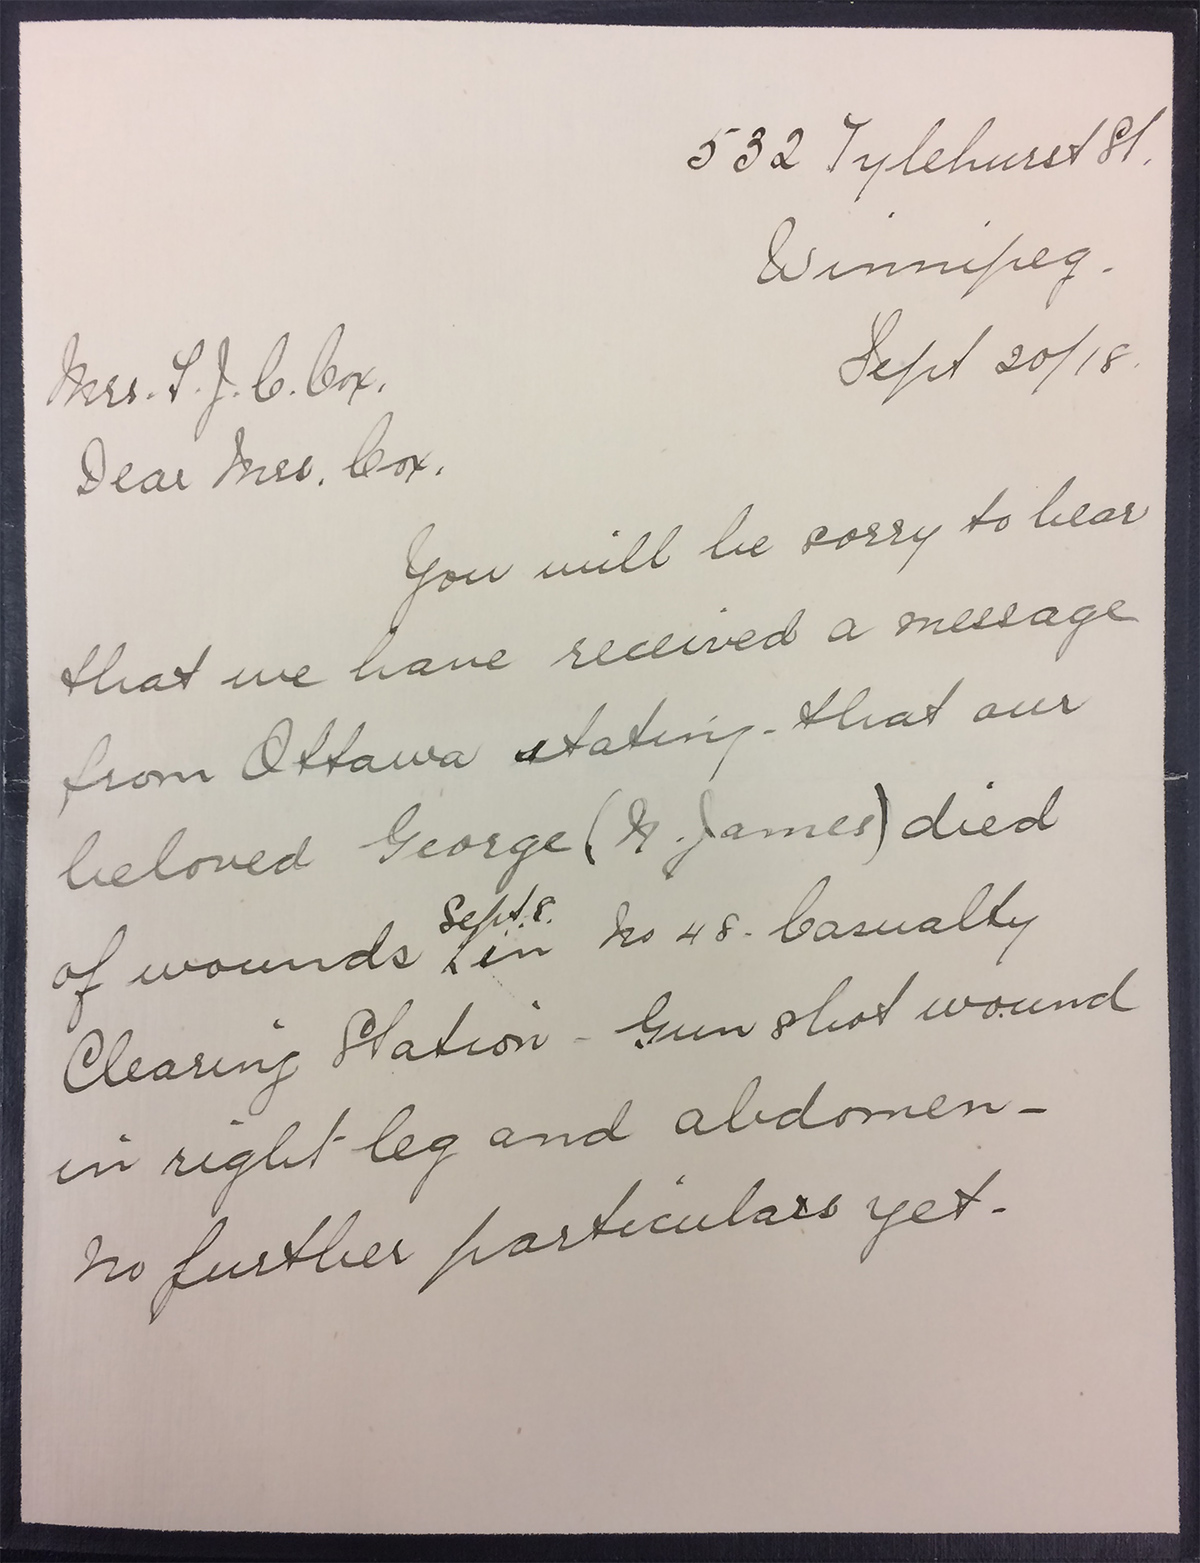 532 Tylehurst St.
Winnipeg.
Sept 20/18.
Mrs. T. J. C. Cox.
Dear Mrs. Cox.
You will be sorry to hear
that we have received a message
from Ottawa stating - that our
beloved George (G. James) died
Sept. 8.
of wounds in No 48 - Casualty
Clearing Station - Gun shot wound
in right leg and abdomen -
No further particulars yet -